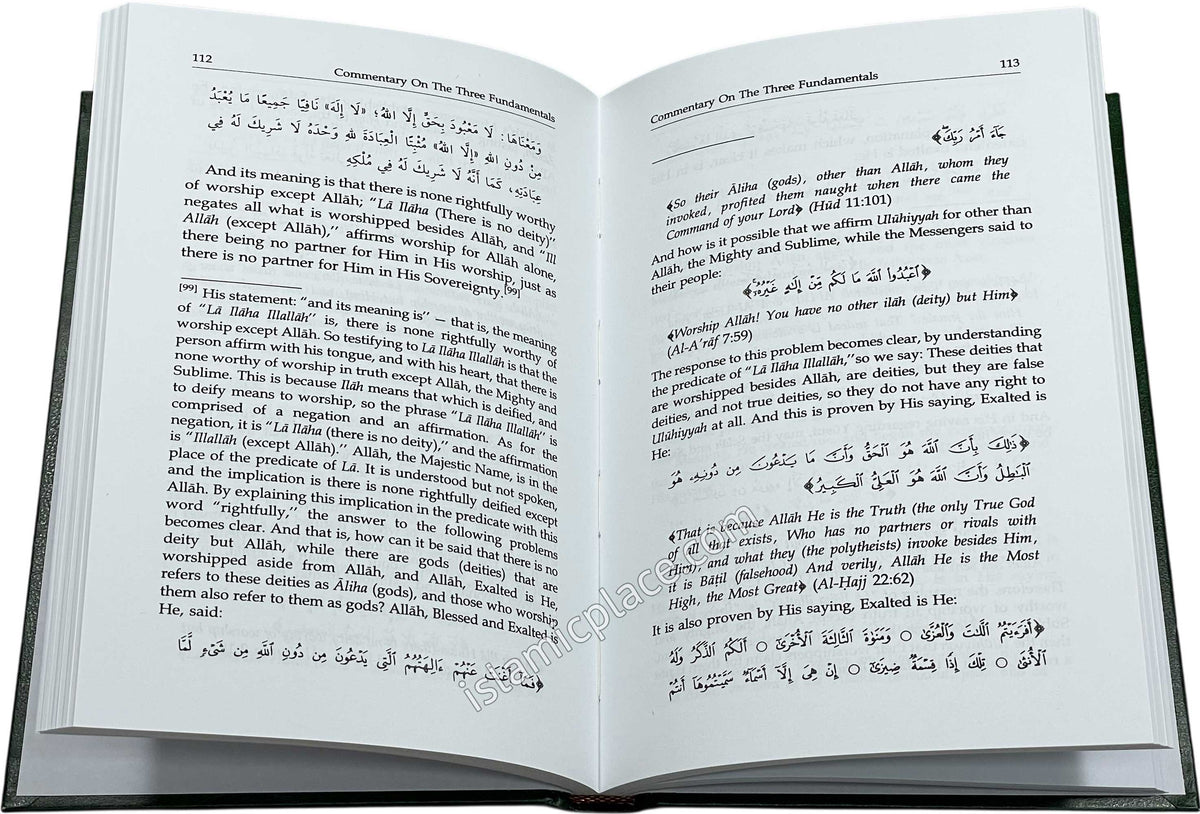 112
Commentary On The Three Fundamentals
وَمَعْنَاهَا: لَا مَعْبُودَ بِحَقٍّ إِلَّا اللهُ؛ «لَا إِلَهَ» نَافِيًا جَمِيعًا مَا يُعْبَدُ
مِنْ دُونِ اللهِ «إِلَّا اللهُ» مُثْبِتًا الْعِبَادَةَ لِلهِ وَحْدَهُ لَا شَرِيكَ لَهُ فِي
عِبَادَتِهِ، كَمَا أَنَّهُ لَا شَرِيكَ لَهُ فِي مُلْكِهِ
And its meaning is that there is none rightfully worthy
of worship except Allāh; “Lā Ilāha (There is no deity)”
negates all what is worshipped besides Allāh, and “Ill
Allāh (except Allāh),” affirms worship for Allāh alone,
there being no partner for Him in His worship, just as
there is no partner for Him in His Sovereignty.[99]
[99] His statement: “and its meaning is” — that is, the meaning
of “Lā Ilāha Illallāh” is, there is none rightfully worthy of
worship except Allāh. So testifying to Lā Ilāha Illallāh is that the
person affirm with his tongue, and with his heart, that there is
none worthy of worship in truth except Allāh, the Mighty and
Sublime. This is because Ilāh means that which is deified, and
to deify means to worship, so the phrase “Lā Ilāha Illallāh” is
comprised of a negation and an affirmation. As for the
negation, it is “Lā Ilāha (there is no deity),” and the affirmation
is “Illallāh (except Allāh).” Allāh, the Majestic Name, is in the
place of the predicate of Lā. It is understood but not spoken,
and the implication is there is none rightfully deified except
Allāh. By explaining this implication in the predicate with this
word “rightfully,” the answer to the following problems
becomes clear. And that is, how can it be said that there is no
deity but Allāh, while there are gods (deities) that are
worshipped aside from Allāh, and Allāh, Exalted is He,
refers to these deities as Āliha (gods), and those who worship
them also refer to them as gods? Allāh, Blessed and Exalted is
He, said:
﴿فَمَآ أَغْنَتْ عَنْهُمْ ءَالِهَتُهُمُ ٱلَّتِى يَدْعُونَ مِن دُونِ ٱللَّهِ مِن شَىْءٍ لَّمَّا
113
Commentary On The Three Fundamentals
جَآءَ أَمْرُ رَبِّكَ﴾
﴾So their Āliha (gods), other than Allāh, whom they
invoked, profited them naught when there came the
Command of your Lord﴿ (Hūd 11:101)
And how is it possible that we affirm Ulūhiyyah for other than
Allāh, the Mighty and Sublime, while the Messengers said to
their people:
﴿ٱعْبُدُوا۟ ٱللَّهَ مَا لَكُم مِّنْ إِلَٰهٍ غَيْرُهُۥٓ﴾
﴾Worship Allāh! You have no other ilāh (deity) but Him﴿
(Al-A’rāf 7:59)
The response to this problem becomes clear, by understanding
the predicate of “Lā Ilāha Illallāh,”so we say: These deities that
are worshipped besides Allāh, are deities, but they are false
deities, and not true deities, so they do not have any right to
Ulūhiyyah at all. And this is proven by His saying, Exalted is
He:
﴿ذَٰلِكَ بِأَنَّ ٱللَّهَ هُوَ ٱلْحَقُّ وَأَنَّ مَا يَدْعُونَ مِن دُونِهِۦ هُوَ
ٱلْبَٰطِلُ وَأَنَّ ٱللَّهَ هُوَ ٱلْعَلِىُّ ٱلْكَبِيرُ﴾
﴾That is because Allāh He is the Truth (the only True God
of all that exists, Who has no partners or rivals with
Him), and what they (the polytheists) invoke besides Him,
it is Bāṭil (falsehood) And verily, Allāh He is the Most
High, the Most Great﴿ (Al-Hajj 22:62)
It is also proven by His saying, Exalted is He:
﴿أَفَرَءَيْتُمُ ٱللَّٰتَ وَٱلْعُزَّىٰ ○ وَمَنَوٰةَ ٱلثَّالِثَةَ ٱلْأُخْرَىٰٓ ○ أَلَكُمُ ٱلذَّكَرُ وَلَهُ
ٱلْأُنثَىٰ ○ تِلْكَ إِذًا قِسْمَةٌ ضِيزَىٰٓ ○ إِنْ هِىَ إِلَّآ أَسْمَآءٌ سَمَّيْتُمُوهَآ أَنتُمْ
islamicplace.com